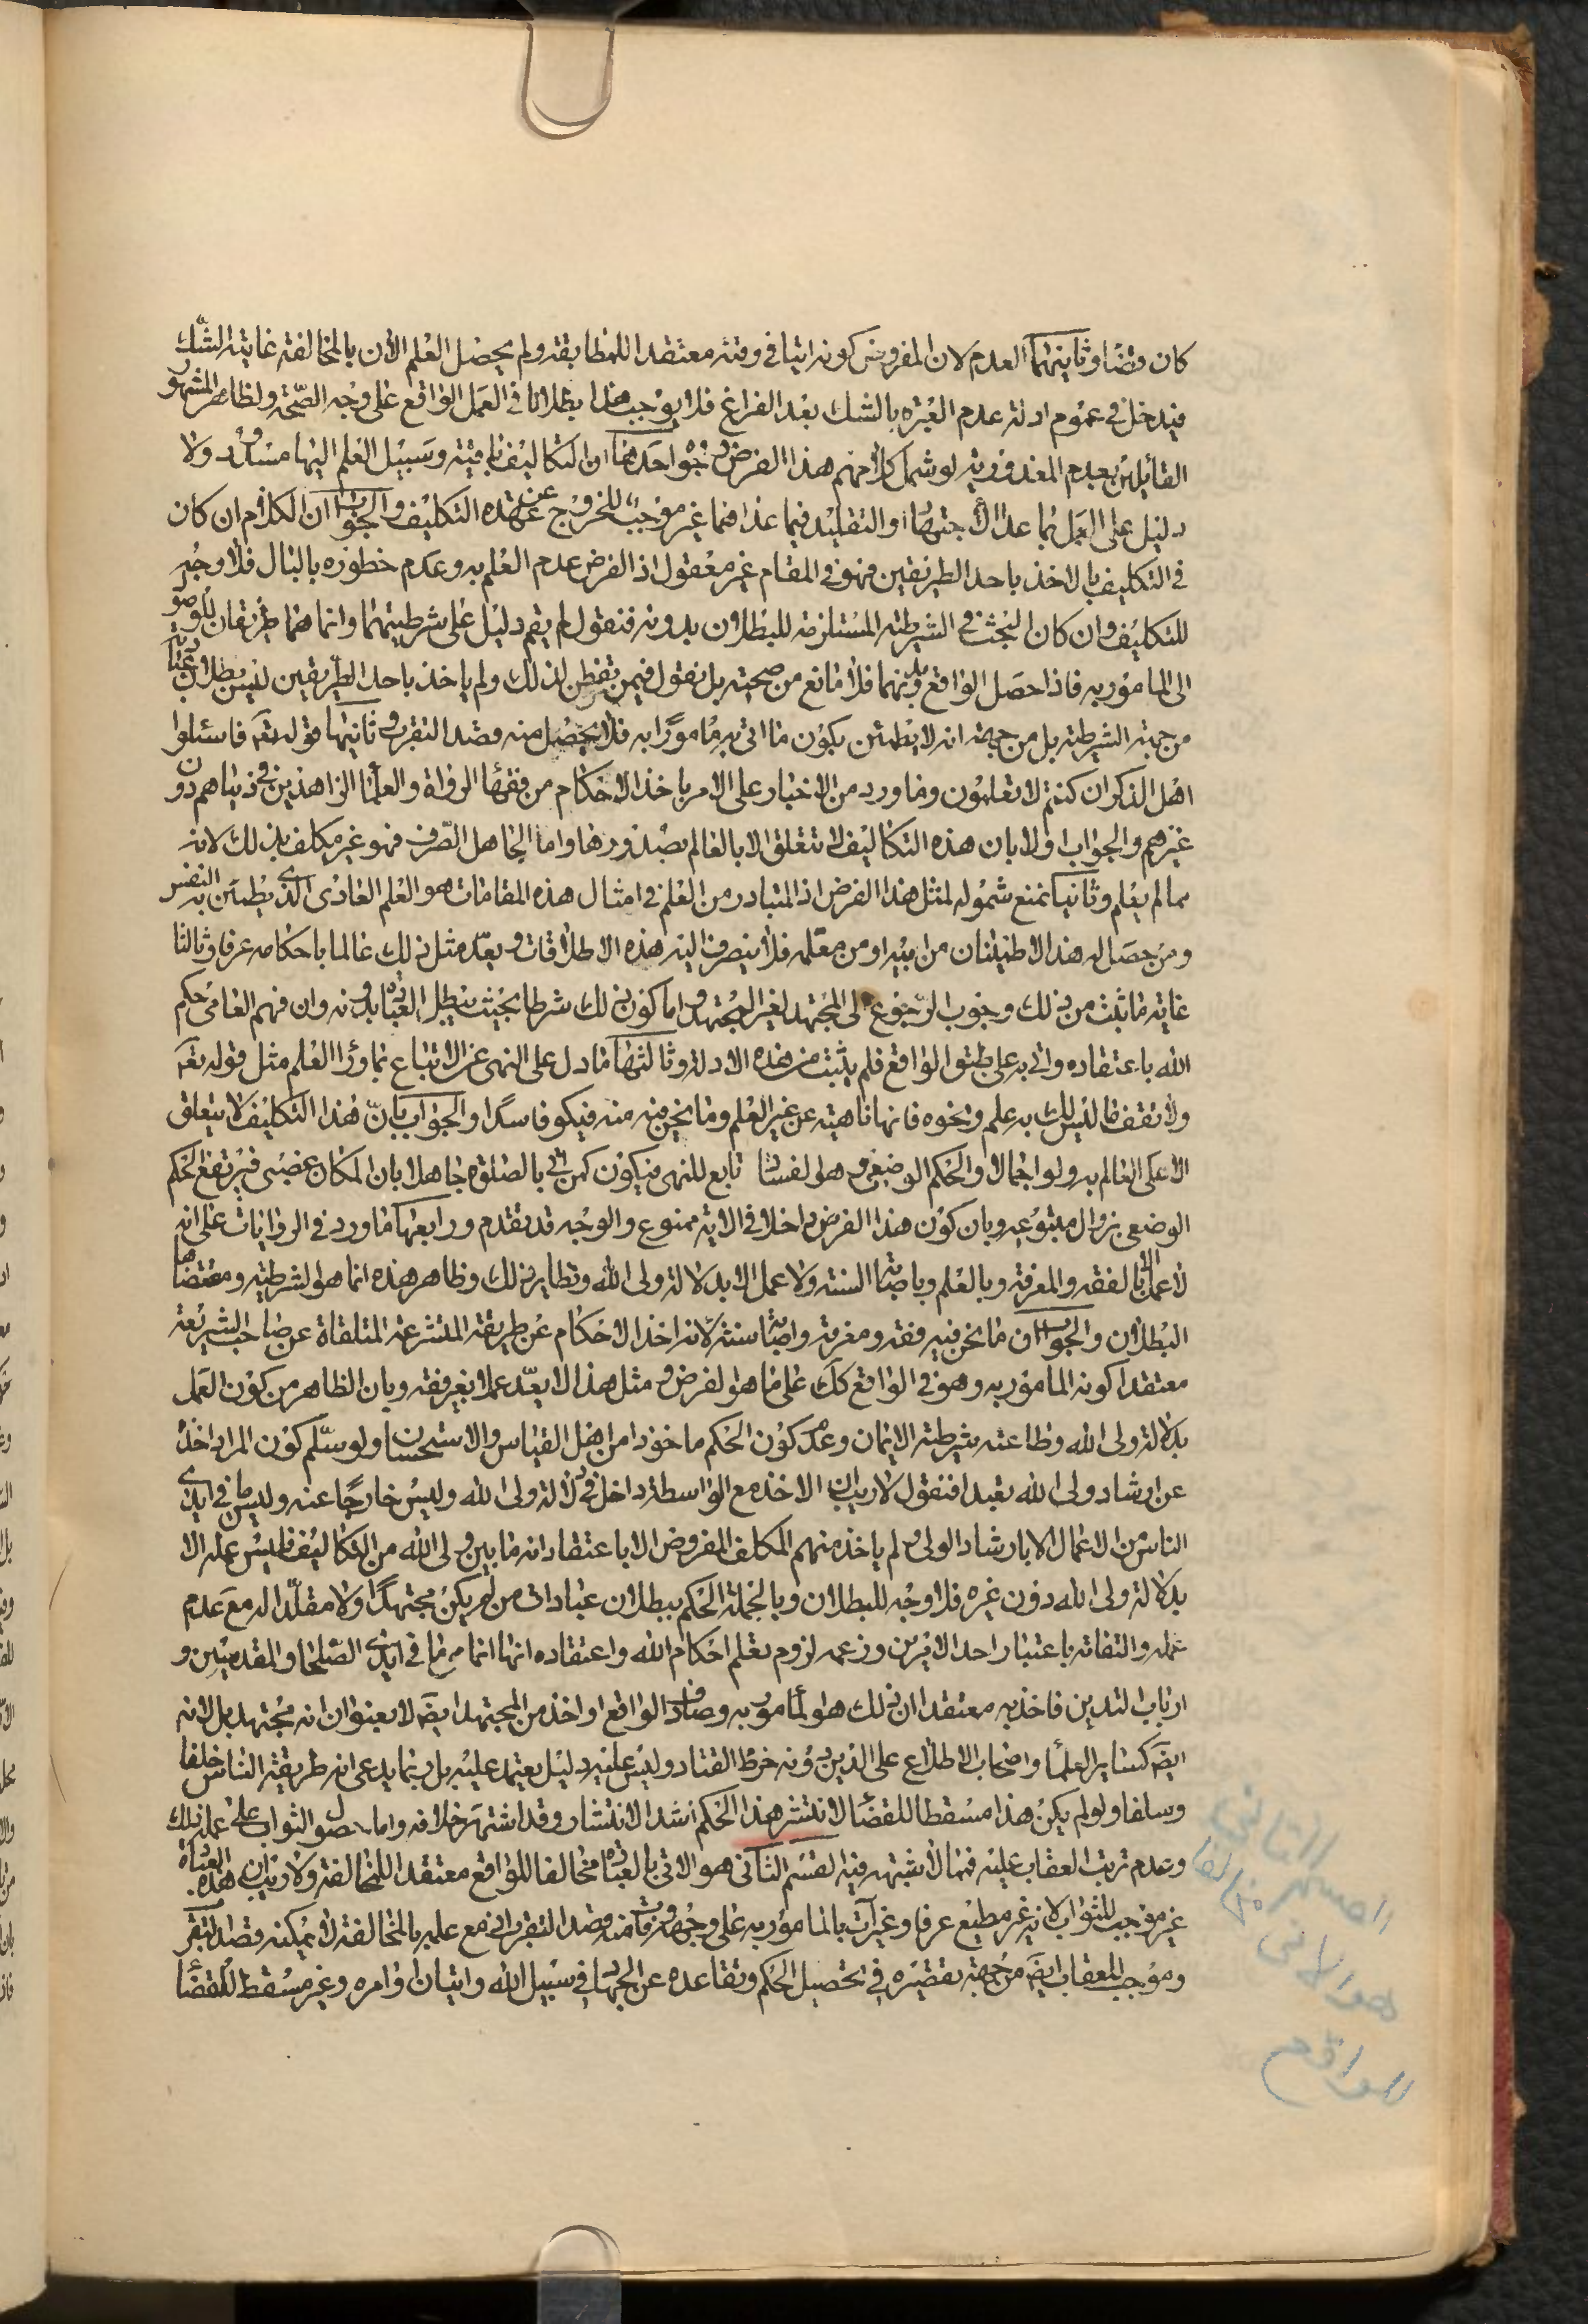 كان وقضا وثانيتهما العدم لان المفروض كونه اتيا في وقته معتقدا للمطابقة ولم يحصل العلم الأن بالمخالفة غايته الشك
فيدخل في عموم ادلة عدم العبرة بالشك بعد الفراغ فلا يوجب هذا بطلانا في العمل الواقع على وجه الصحة ولظاهر المشهور
القائلين بعدم المعذورية لو شمل كلامهم هذا الفرض وجوه احدها ان التكاليف باقية وسبيل العلم اليها مسدود ولا
دليل على العمل بما عدا الاجتهاد او التقليد فيما عداهما غير موجب للخروج عن عهدة التكليف والجواب ان الكلام ان كان
في التكليف بالاخذ باحد الطريقين فهو في المقام غير معقول اذ الفرض عدم العلم به وعدم خطوره بالبال فلا وجه
للتكليف وان كان البحث في الشرطية المستلزمة للبطلان بدونه فنقول لم يقم دليل على شرطيتهما وانما هما طريقان للوصول
الى المامور به فاذا حصل الواقع بدونهما فلا مانع من صحته بل نقول فيمن تفطن لذلك ولم ياخذ باحد الطريقين ليس بطلان عباداته
من جهة الشرطية بل من جهة انه لا يطمئن بكون ما اتى به مامورا به فلا يحصل منه قصد التقرب وثانيها قوله تعه فاسئلوا
اهل الذكر ان كنتم لا تعلمون وما ورد من الاخبار على الامر باخذ الاحكام من فقهاء الرواة والعلماء الزاهدين في دنياهم دون
غيرهم والجواب اولا بان هذه التكاليف لا تتعلق الا بالعالم بصدورها واما الجاهل الصرف فهو غير مكلف بذلك لانه
مما لم يعلم وثانيا نمنع شموله لمثل هذا الفرض اذ المتبادر من العلم في امثال هذه المقامات هو العلم العادى الذى يطمئن به النفس
ومن حصل له هذا الاطمينان من ابيه او من معلمه فلا ينصرف اليه هذه الاطلاقات ويعد مثل ذلك عالما باحكامه عرفا وثالثا
غاية ما ثبت من ذلك وجوب الرجوع الى المجتهد لغير المجتهد واما كون ذلك شرطا بحيث يبطل العبادة بدونه وان فهم العامى حكم
الله باعتقاده واتى به على طبق الواقع فلم يثبت من هذه الادلة وثالثها ما دل على النهى عن الاتباع بما وراء العلم مثل قوله تعه
ولا تقف ما ليس لك به علم ونحوه فانها ناهية عن غير العلم وما نحن فيه منه فيكون فاسدا والجواب بان هذا التكليف لا يتعلق
الا على العالم به ولو اجمالا والحكم الوضعى وهو الفساد تابع للنهى فيكون كمن اتى بالصلوة جاهلا بان المكان غصبى فيرتفع الحكم
الوضعى بزوال متبوعه وبان كون هذا الفرض داخلا في الاية ممنوع والوجه قد تقدم ورابعها ما ورد في الروايات على انه
لا عمل الا بالفقه والمعرفة وبالعلم وباصابة السنة ولا عمل الا بدلالة ولى الله ونظاير ذلك وظاهر هذه انما هو الشرطية ومقتضاها
البطلان والجواب ان ما نحن فيه فقه ومعرفة واصابة سنة لانه اخذ الاحكام عن طريقة المتشرعة المتلقاة عن صاحب الشريعة
معتقدا كونه المامور به وهو في الواقع كك على ما هو الفرض ومثل هذا لا يعد عملا بغير فقه وبان الظاهر من كون العمل
بدلالة ولى الله وطاعته شرطية الايمان وعدم كون الحكم ماخوذا من اهل القياس والاستحسان ولو سلم كون المراد اخذه
عن ارشاد ولى الله تعبدا فنقول لا ريب ان الاخذ مع الواسطة داخل في دلالة ولى الله وليس خارجا عنه وليس ما في ايدى
الناس من الاعمال الا بارشاد الولى ولم ياخذ منهم المكلف المفروض الا باعتقاد انه ما بين ولى الله من التكاليف فليس عمله الا
بدلالة ولى الله دون غيره فلا وجه للبطلان وبالجملة الحكم ببطلان عبادات من لم يكن مجتهدا ولا مقلدا له مع عدم
علمه والتفاته باعتبار احد الامرين وزعمه لزوم تعلم احكام الله واعتقاده انها انما هى ما في ايدى الصلحاء والمقدسين و
ارباب التدين فاخذ به معتقدا ان ذلك هو المامور به وصادف الواقع او اخذ من المجتهد ايضه لا بعنوان انه مجتهد بل لانه
ايضه كساير العلماء واصحاب الاطلاع على الدين دونه خرط القتاد وليس عليه دليل يعتمد عليه بل ربما يدعى انه طريقة الناس خلفا
وسلفا ولو لم يكن هذا مسقطا للقضاء لانتشر هذا الحكم اشد الانتشار وقد اشتهر خلافه واما حصول الثواب على عمله ذلك
وعدم ترتب العقاب عليه فمما لا شبهة فيه القسم الثانى هو الاتى بالعبادة مخالفا للواقع معتقدا للمخالفة ولا ريب ان هذه العبادة
غير موجب للثواب لانه غير مطيع عرفا وغير آت بالمامور به على وجهه وفات منه قصد التقرب اذ مع علمه بالمخالفة لا يمكنه قصد التقرب
وموجب للعقاب ايضه من جهة تقصيره في تحصيل الحكم وتقاعده عن الجهاد في سبيل الله واتيان اوامره وغير مسقط للقضاء
القسم الثاني
هو الاتي
للواقع